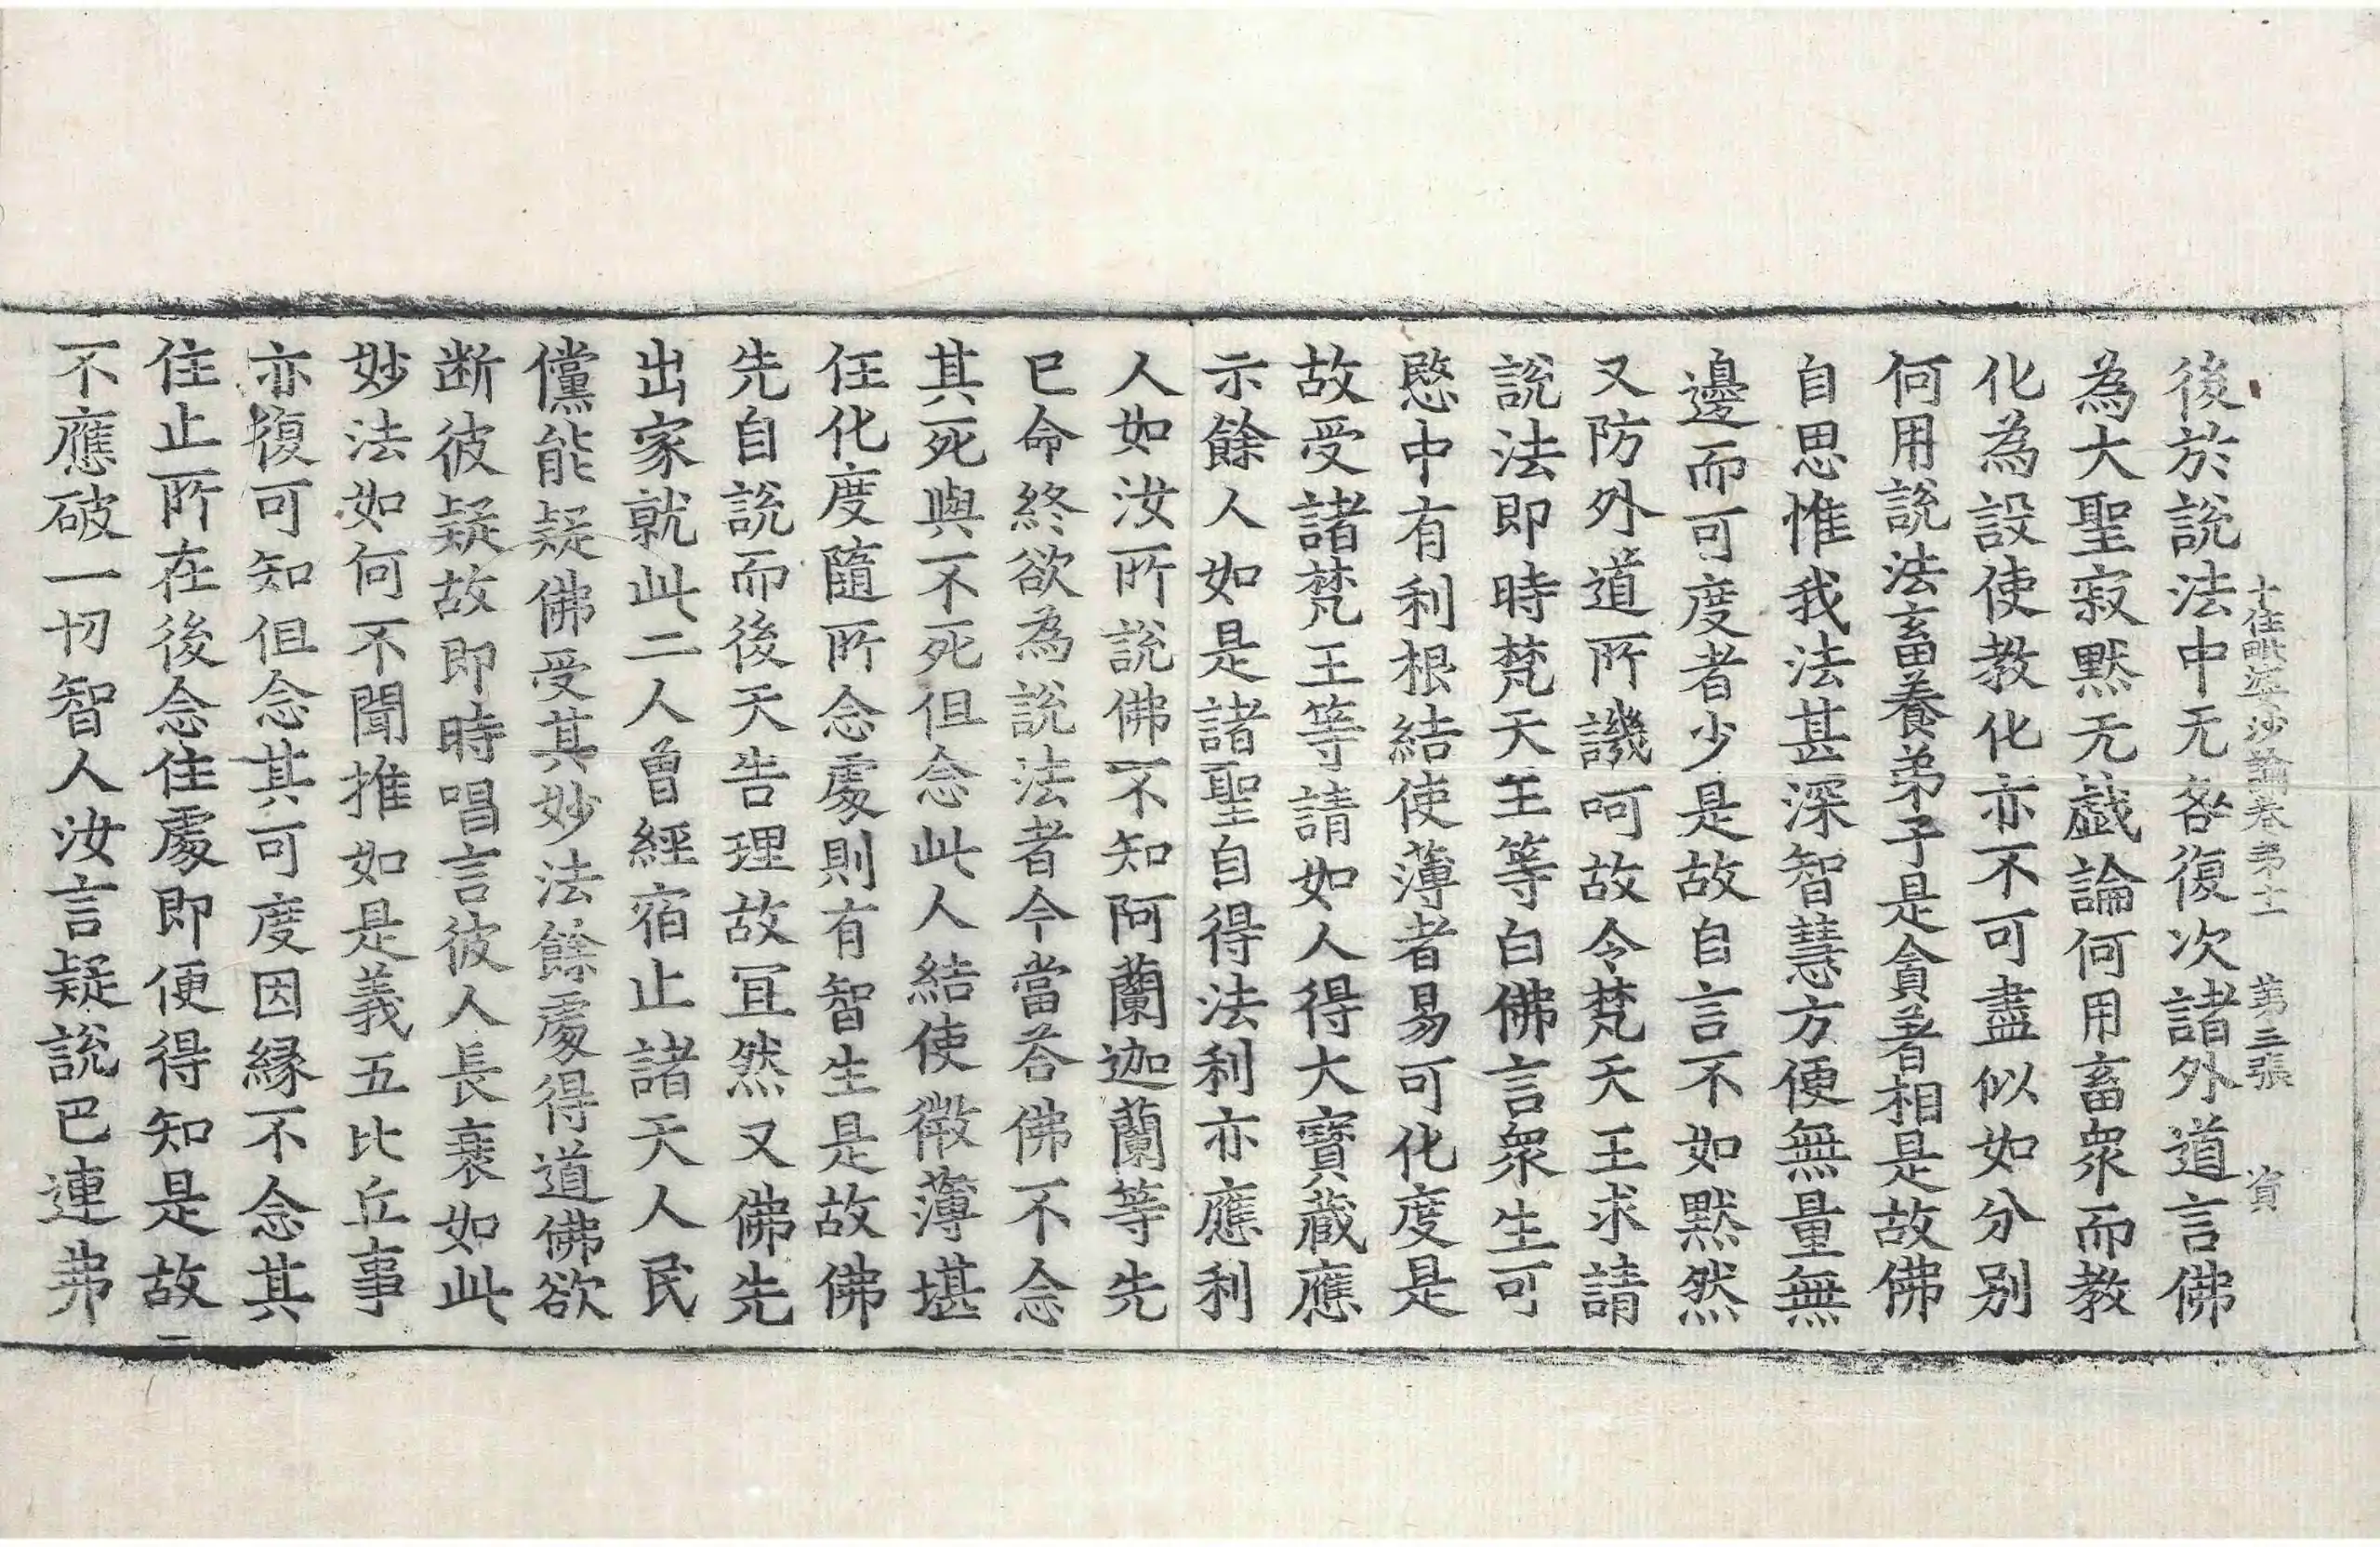 十住毗婆沙論卷第十一　第三張　資
後於說法中无咎復次諸外道言佛
為大聖寂默无戲論何用畜衆而教
化為設使教化亦不可盡似如分別
何用說法畜養弟子是貪著相是故佛
自思惟我法甚深智慧方便無量無
邊而可度者少是故自言不如默然
又防外道所譏呵故令梵天王求請
說法即時梵天王等白佛言衆生可
愍中有利根結使薄者易可化度是
故受諸梵王等請如人得大寶藏應
示餘人如是諸聖自得法利亦應利
人如汝所說佛不知阿蘭迦蘭等先
已命終欲為說法者今當荅佛不念
其死與不死但念此人結使微薄堪
任化度隨所念處則有智生是故佛
先自說而後天告理故冝然又佛先
出家就此二人曾經宿止諸天人民
儻能疑佛受其妙法餘處得道佛欲
断彼疑故即時唱言彼人長衰如此
妙法如何不聞推如是義五比丘事
亦復可知但念其可度因縁不念其
住止所在後念住處即便得知是故
不應破一切智人汝言疑說巴連弗
二